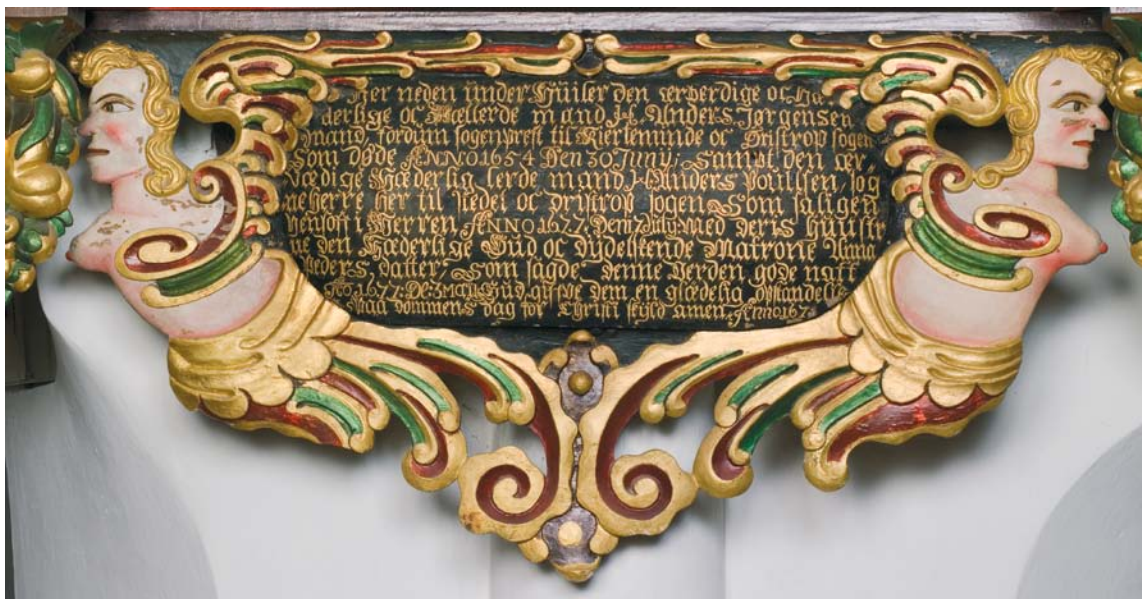 Her neden ünder Hüiler den ærverdige oc Hæ
derlige oc Vellerde mand H. Anders Jørgensen
mand, fordum sogenprest til Kierteminde oc Dristrop sogen
Som døde ANNO 1654 Den 30 Juny; Sampt den ær
værdige Hæderlig lerde mand H. Anders Poüllsen, sog
neherre her til stedet oc dristrop sogen, Som saligen
hensoff i Herren ANNO 1677. Den July. Med deris Hüüstr
ue den Hæderlige Güd oc Dÿdelskende Matrone Anna
Peders, datter, Som sagde denne Verden gode natt
1677. De: 3 May, Gud giffve dem en glædelig opstandelse
paa dommens dag for Christi skyld amen, Anno 167